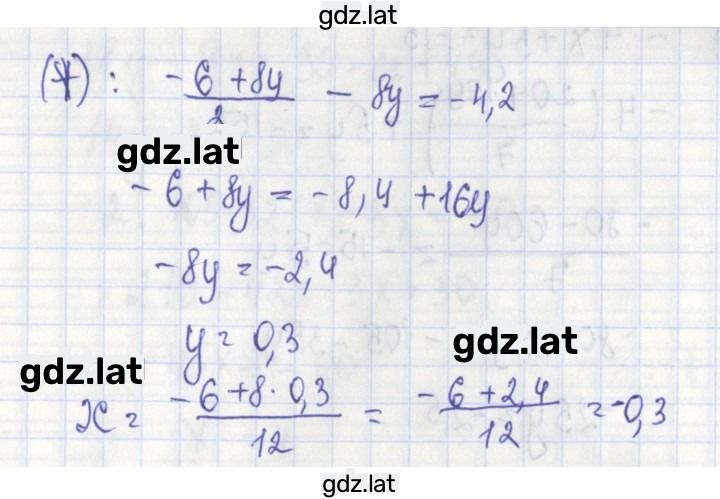 gdz.lat
(*): (-6 + 8y)/2 - 8y = -4,2
gdz.lat
-6 + 8y = -8,4 + 16y
-8y = -2,4
y = 0,3
gdz.lat
gdz.lat
x = (-6 + 8 · 0,3)/12 = (-6 + 2,4)/12 = -0,3
gdz.lat